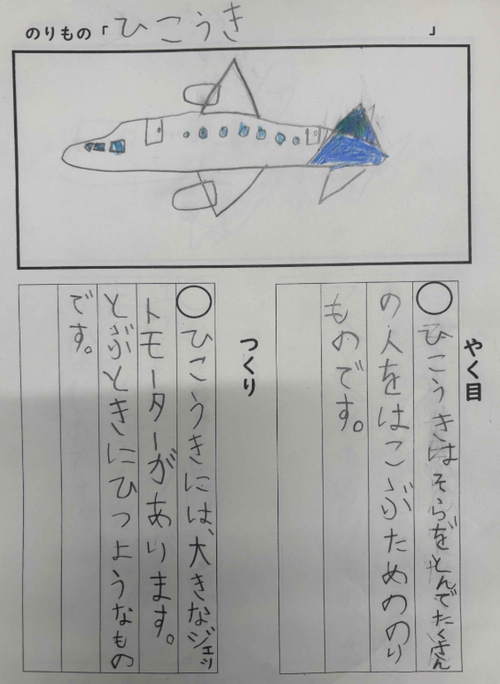 のりもの「ひこうき」
やく目
○ひこうきはそらをとんでたくさん
の人をはこぶためののり
ものです。
つくり
○ひこうきには、大きな、ジェッ
トモーターがあります。
とぶときにひつようなもの
です。